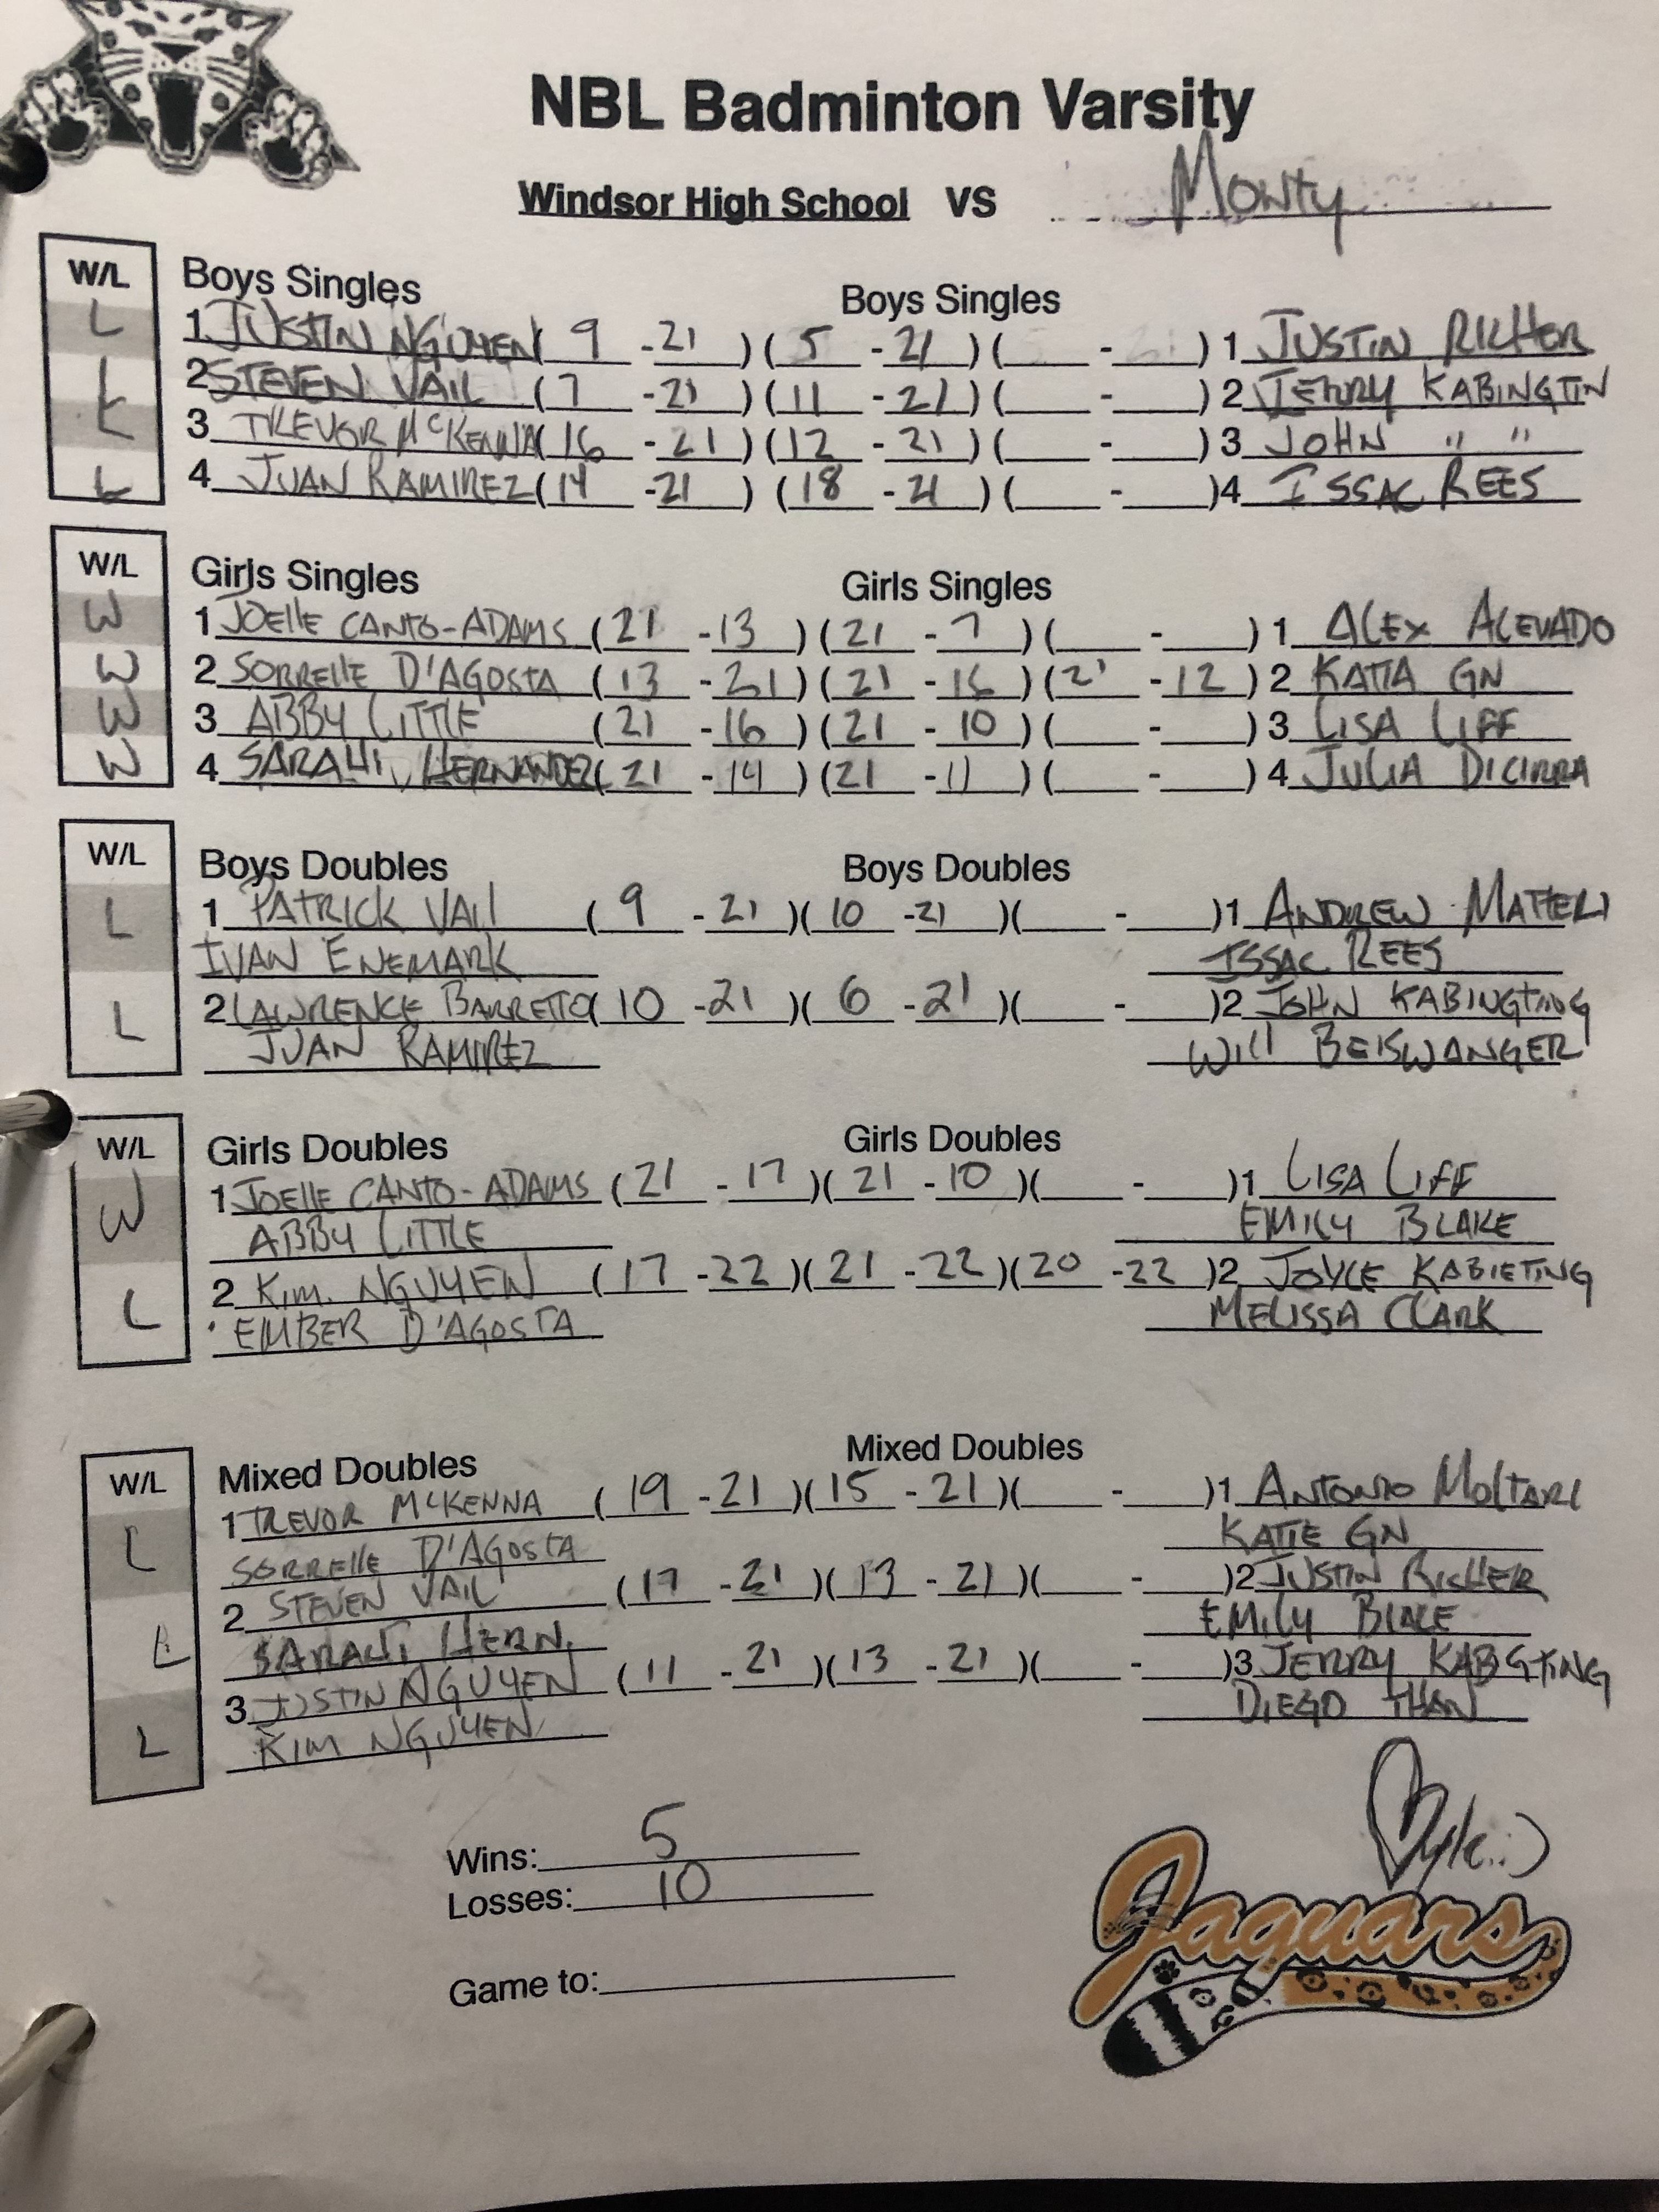 NBL Badminton Varsity
Windsor High School VS Monty
W/L Boys Singles Boys Singles
L 1 JUSTIN NGUYEN ( 9 - 21 ) ( 5 - 21 ) ( - ) 1 JUSTIN RICHER
L 2 STEVEN VAIL ( 7 - 21 ) ( 11 - 21 ) ( - ) 2 JERRY KABINGTIN
L 3 TREVOR McKENNA ( 16 - 21 ) ( 12 - 21 ) ( - ) 3 JOHN " "
L 4 JUAN RAMIREZ ( 14 - 21 ) ( 18 - 21 ) ( - ) 4 ISSAC REES
W/L Girls Singles Girls Singles
W 1 JOElle CANTO-ADAMS ( 21 - 13 ) ( 21 - 7 ) ( - ) 1 ALEX ACEVADO
W 2 SORREllE D'AGOSTA ( 13 - 21 ) ( 21 - 16 ) ( 21 - 12 ) 2 KATIA GN
W 3 ABBY LITTLE ( 21 - 16 ) ( 21 - 10 ) ( - ) 3 LISA LIFF
W 4 SARAHI HERNANDEZ ( 21 - 14 ) ( 21 - 11 ) ( - ) 4 JULIA DICIRRA
W/L Boys Doubles Boys Doubles
L 1 PATRICK VAIl ( 9 - 21 ) ( 10 - 21 ) ( - ) 1 ANDREW MATTERI
IVAN ENEMARK ISSAC REES
L 2 LAWRENCE BARRETTO ( 10 - 21 ) ( 6 - 21 ) ( - ) 2 JOHN KABINGTING
JUAN RAMIREZ WIll BEISWANGER
W/L Girls Doubles Girls Doubles
W 1 JOElle CANTO-ADAMS ( 21 - 17 ) ( 21 - 10 ) ( - ) 1 LISA LIFF
ABBY LITTLE EMILY BLAKE
L 2 KIM. NGUYEN ( 17 - 22 ) ( 21 - 22 ) ( 20 - 22 ) 2 JOYCE KABIETING
EMBER D'AGOSTA MELISSA CLARK
W/L Mixed Doubles Mixed Doubles
L 1 TREVOR McKENNA ( 19 - 21 ) ( 15 - 21 ) ( - ) 1 ANTONIO MOLTARI
SORRElle D'AGOSTA KATIE GN
L 2 STEVEN VAIL ( 17 - 21 ) ( 13 - 21 ) ( - ) 2 JUSTIN RICHER
SARAHI HERN. EMILY BLAKE
L 3 JUSTIN NGUYEN ( 11 - 21 ) ( 13 - 21 ) ( - ) 3 JERRY KABGTING
KIM NGUYEN DIEGO THAN
Wins: 5
Losses: 10
Game to:
Jaguars